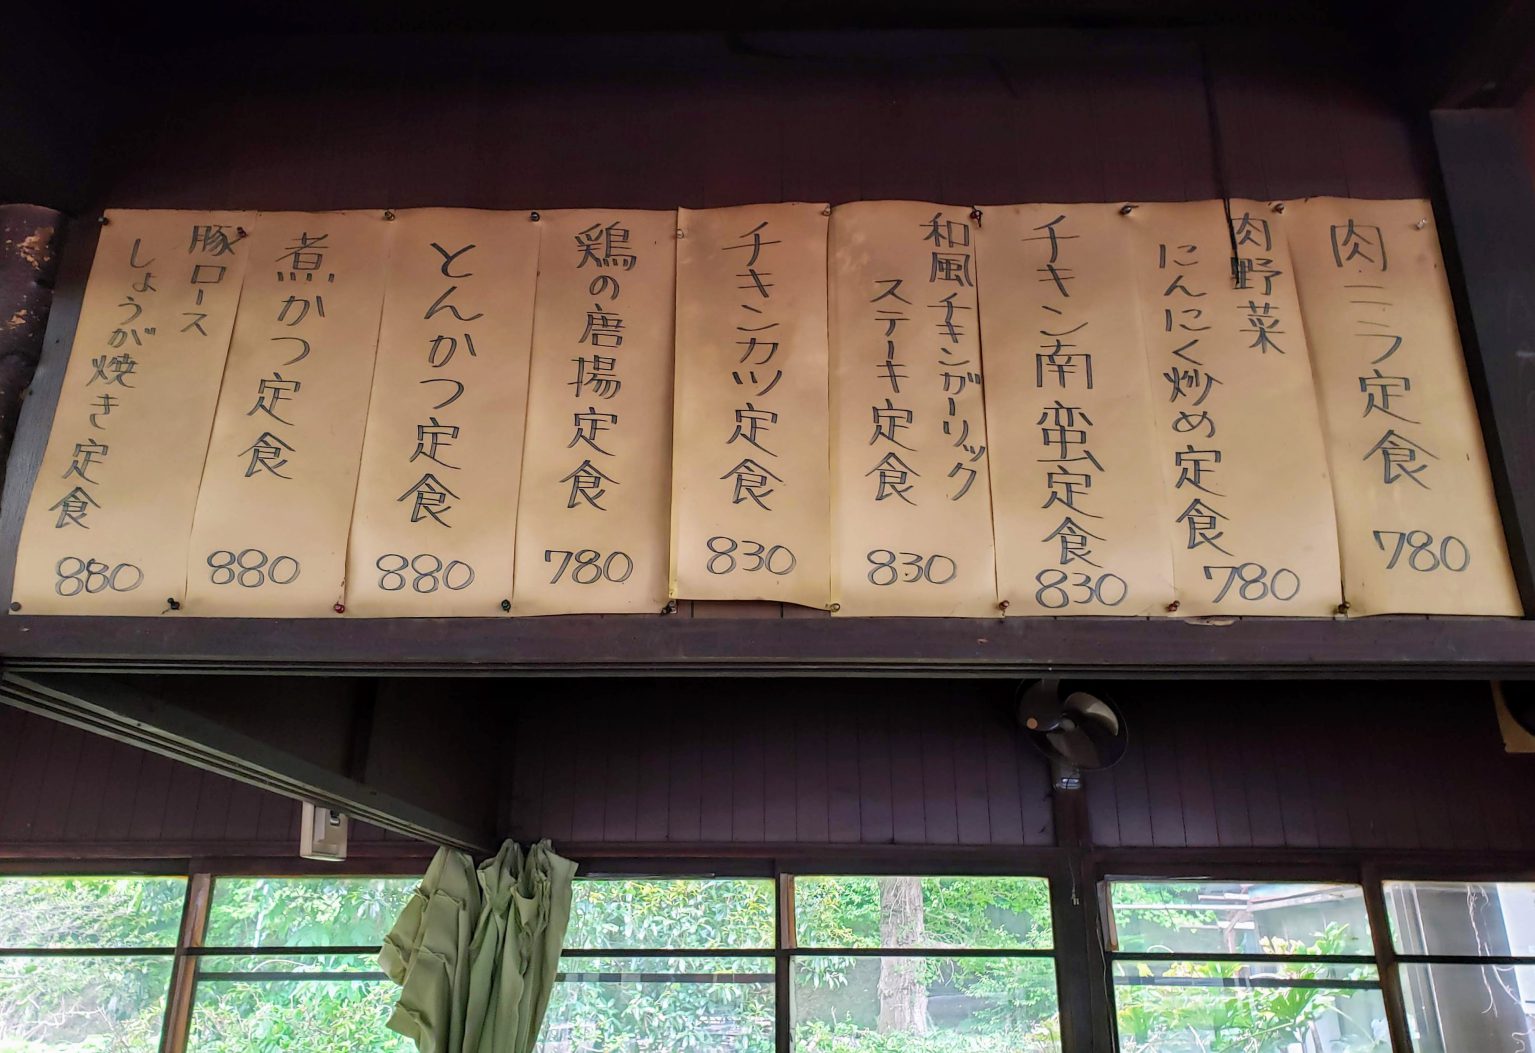 肉ニラ定食
780
肉野菜
にんにく炒め定食
780
チキン南蛮定食
830
和風チキンガーリック
ステーキ定食
830
チキンカツ定食
830
鶏の唐揚定食
780
とんかつ定食
880
煮かつ定食
880
豚ロース
しょうが焼き定食
880